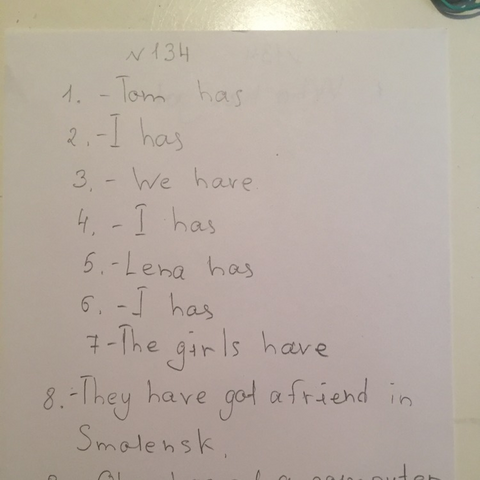 N 134
1. - Tom has
2. - I has
3. - We have
4. - I has
5. - Lena has
6. - I has
7 - The girls have
8. - They have got a friend in
Smolensk.
a computer